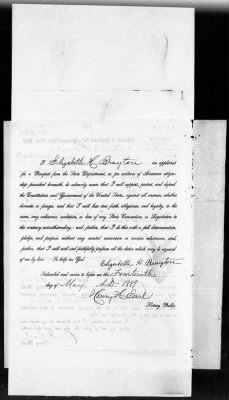 I Elizabeth H. Brayton an applicant
for a Passport from the State Department, as per evidence of American citizen-
ship furnished herewith, do solemnly swear that I will support, protect, and defend
the Constitution and Government of the United States, against all enemies, whether
domestic or foreign, and that I will bear true faith, allegiance, and loyalty, to the
same, any ordinance, resolution, or law of any State Convention, or Legislature to
the contrary notwithstanding; and further, that I do this with a full determination,
pledge, and purpose, without any mental reservation or evasion whatsoever, and,
further, that I will well and faithfully perform all the duties which may be required
of me by law. So help me God!
Elizabeth H. Brayton
Subscribed and sworn to before me this Fourteenth
day of May, A.D. 1889
Henry H. Earl
Notary Public